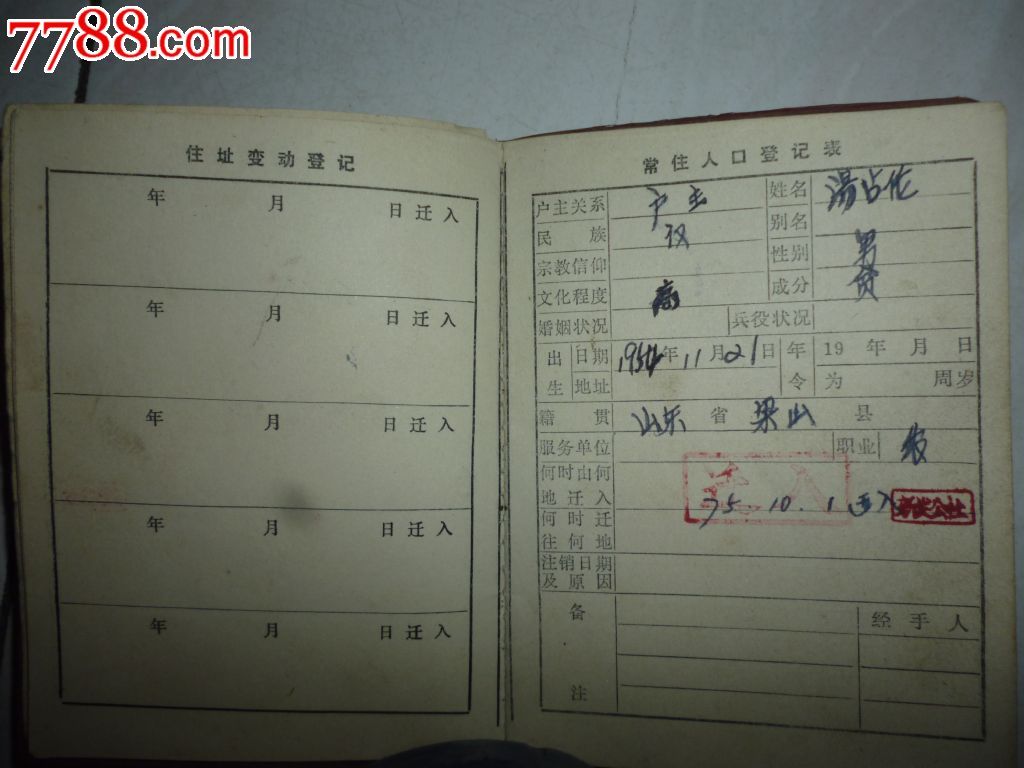 7788.com
住址变动登记
年 月 日迁入
年 月 日迁入
年 月 日迁入
年 月 日迁入
年 月 日迁入
常住人口登记表
户主关系 户主 姓名 湯占伦
民族 汉 别名
宗教信仰 性别 男
文化程度 高 成分 贫
婚姻状况 兵役状况
出生 日期 1954年11月21日 年令 19 年 月 日
地址 为 周岁
籍贯 山东省梁山县
服务单位 职业 农
何时由何
地迁入 75.10.1迁入
何时迁
往何地
注销日期
及原因
备注 经手人